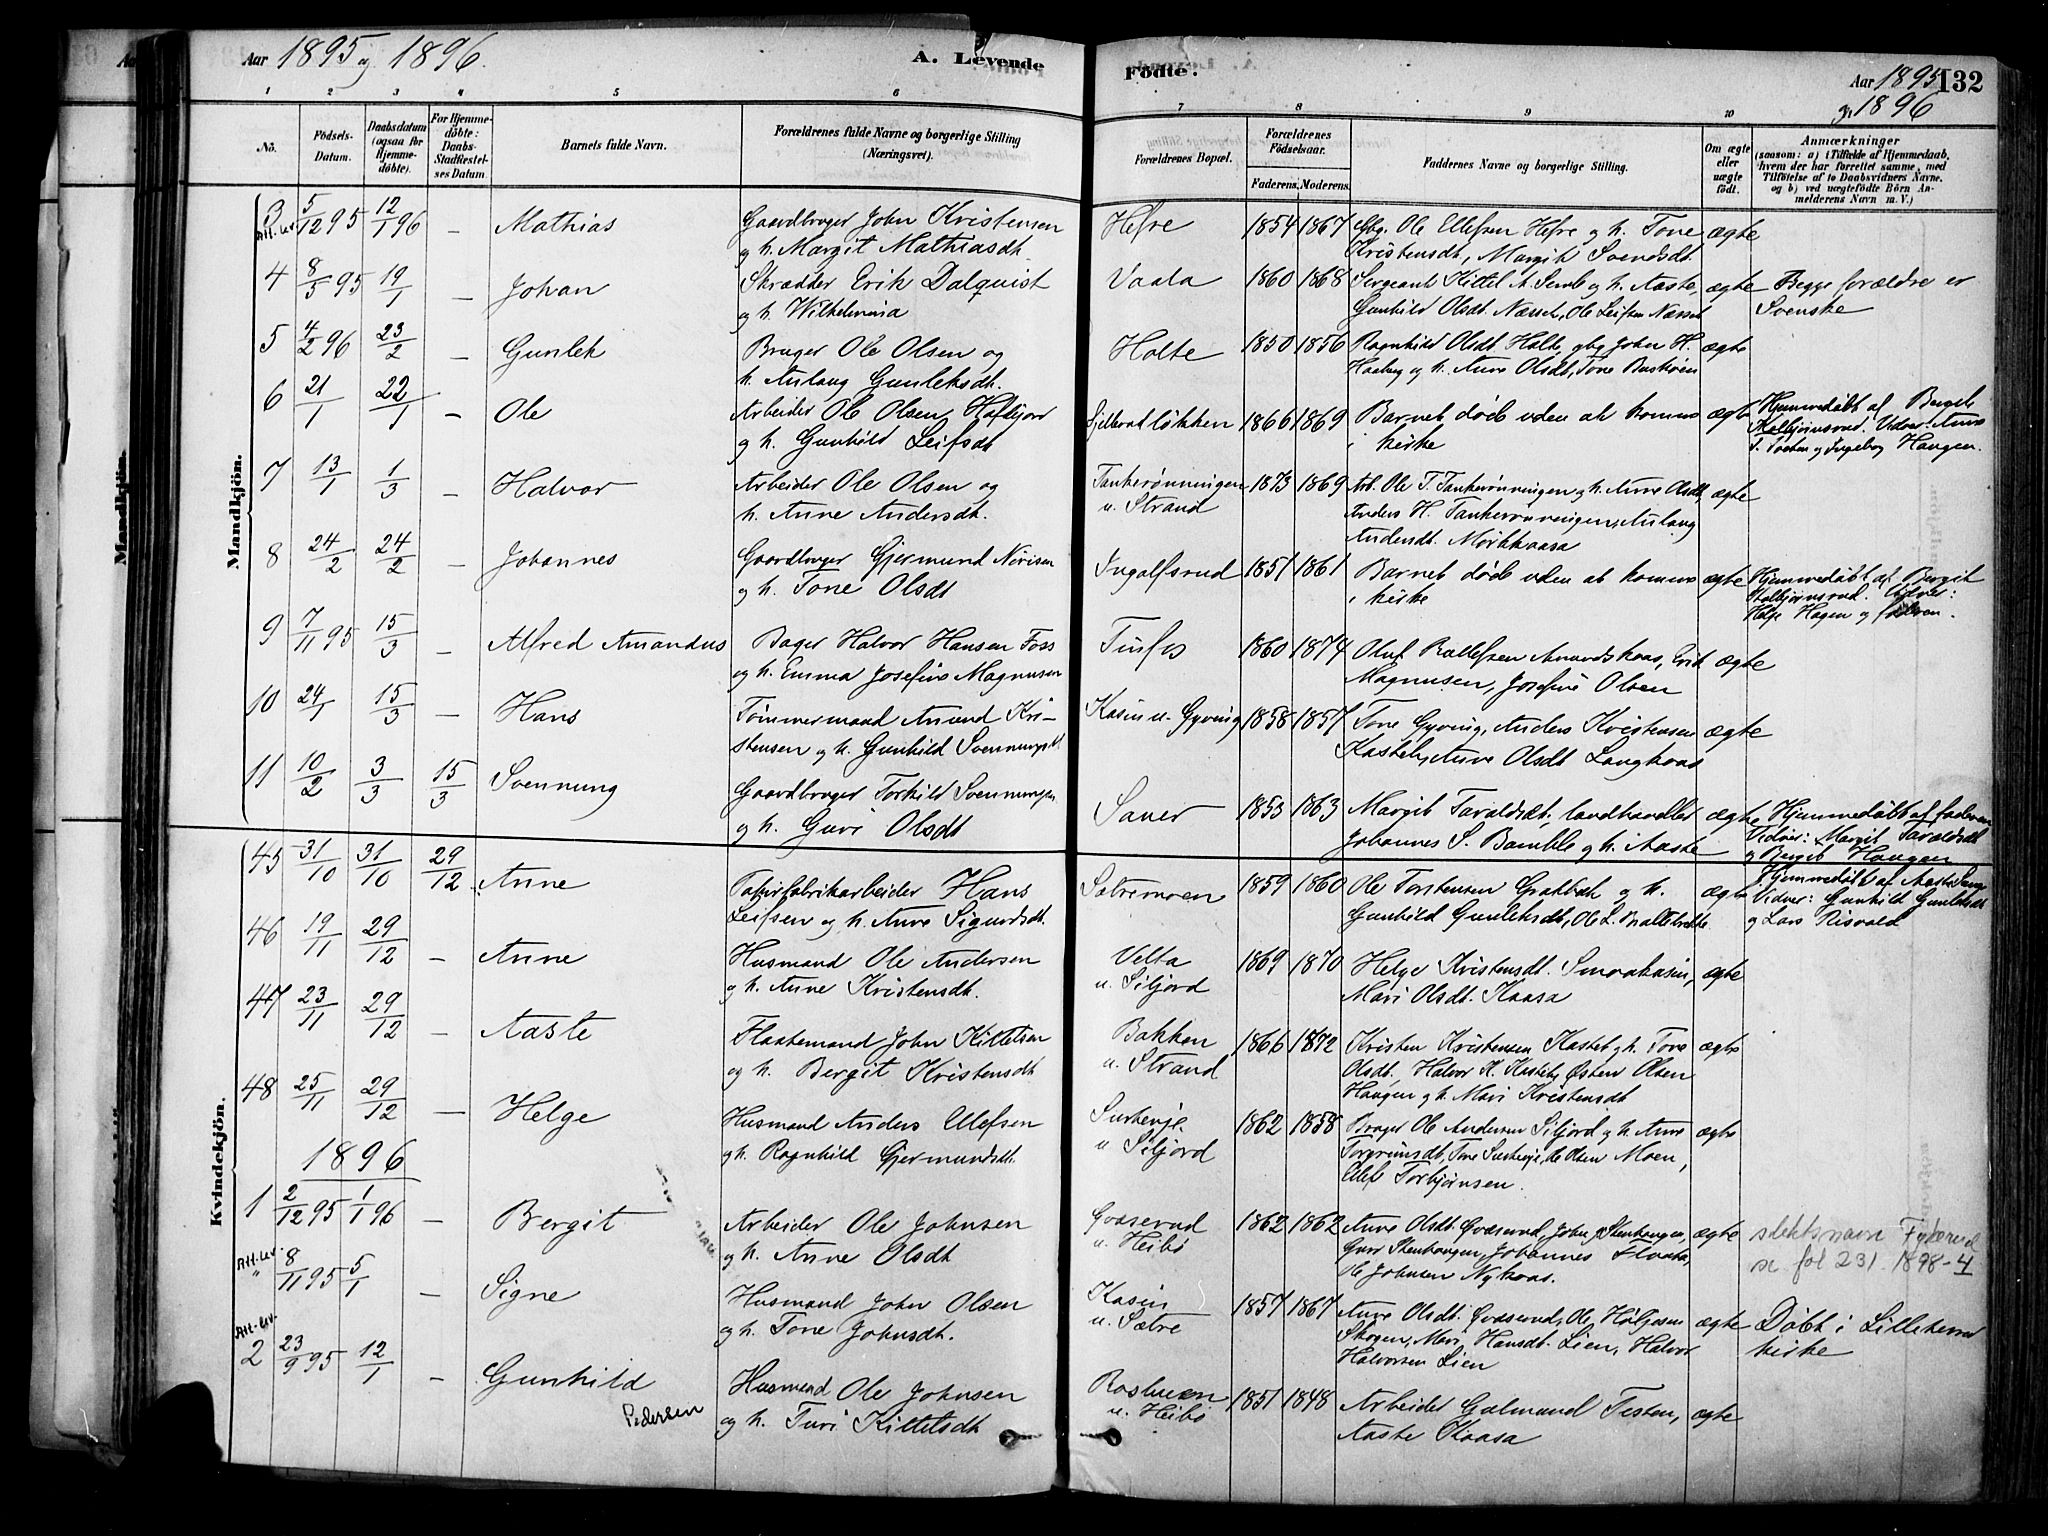 Aar 1895 og 1896.
A. Levende
Födte.
Aar 1895 132
og 1896
1 2 3 4 5 6 7 8 9 10
No.
Födsels-
Datum.
Daabsdatum
(ogsaa for
Hjemme-
döbte).
For Hjemme-
döbte:
Daabs-
Stadfæstel-
ses Datum.
Barnets fulde Navn.
Forældrenes fulde Navne og borgerlige Stilling
(Næringsvei).
Forældrenes Bopæl.
Forældrenes
Födselsaar.
Faderens. Moderens.
Faddernes Navne og borgerlige Stilling.
Om ægte
eller
uægte
födt.
Anmærkninger
(saasom: a) i Tilfælde af Hjemmedaab,
hvem der har forrettet samme, med
Tilföielse af to Daabsvidners Navne,
og b) ved uægtefödte Börn An-
melderens Navn m. V.)
Mandkjön.
Kvindekjön.
3 5/12 95 12/1 96 – Mathias
Att. lev.
Gaardbruger John Kristensen
og h. Margit Mathiasdt.
Hefre 1854 1867
Gbg. Ole Ellefsen Hefre og h. Tone
Kristensdt, Margit Svendsdt.
ægte
4 8/5 95 19/1 – Johan
Skrædder Erik Dalquist
og h. Wilhelmina
Vaala 1860 1868
Sergeant Kittel A. Semb og h. Aaste,
Gunhild Olsdt. Næsset, Ole Leifsen Næsset
ægte
Begge forældre er
Svenske
5 4/2 96 23/2 – Gunlek
Bruger Ole Olsen og
h. Aslaug Gunleksdt.
Holte 1850 1856
Ragnhild Olsdt Holte, gbg John H.
Haaberg og h. Anne Olsdt, Tone Buskøien
ægte
6 21/1 22/1 – Ole
Arbeider Ole Olsen Hafljord
og h. Gunhild Leifsdt
1866 1869
Barnet døde uden at komme
i kirke
ægte
Hjemmedøbt af Bergit
Kolbjørnsrud. Vidner: Anne
og Ingeborg Haugen.
7 13/1 1/3 – Halvor
Arbeider Ole Olsen og
h. Anne Andersdt.
Tankerønningen
u. Strand
1873 1869
Arb. Ole T. Tankerønningen og h. Anne Olsdt,
Anders H. Tankerønningen, Aslaug
Andersdt. Mørkkaasa
ægte
8 24/2 24/2 – Johannes
Gaardbruger Gjermund Nirisen
og h. Tone Olsdt
Ingolfsrud 1851 1861
Barnet døde uden at komme
i kirke
ægte
Hjemmedøbt af Bergit
Kolbjørnsrud. Vidner:
Helje Hagen og faderen.
9 7/11 95 15/3 – Alfred Amandus
Bager Halvor Hansen Foss
og h. Emma Josefine Magnusen
Tinfos 1860 1874
Oluf Rollefsen Amundskaas, Erik
Magnusen, Josefine Olsen
ægte
10 24/1 15/3 – Hans
Tømmermand Amund Kri-
stensen og h. Gunhild Svenningsdt.
Kasin u. Gyving 1858 1857
Tone Gyving, Anders Kristensen
Kasteby, Anne Olsdt Langkaas
ægte
11 10/2 3/3 15/3 Svennung
Gaardbruger Torkild Svennungsen
og h. Guri Olsdt
Sauer 1853 1863
Margit Taraldsdt, landhandler
Johannes S. Bamble og h. Aaste
ægte
Hjemmedøbt af faderen
Vidner: Margit Taraldsdt
og Bergit Haugen
45 31/10 31/10 29/12 Anne
Papirfabrikarbeider Hans
Leifsen og h. Anne Sigurdsdt.
Sætremoen 1859 1860
Ole Torstensen Grakbæk og h.
Gunhild Gunleksdt, Ole L. Baltebrekke
ægte
Hjemmedøbt af Aaste
Vidner: Gunhild Gunleksdt
og Lars Risvald
46 19/11 29/12 – Anne
Husmand Ole Andersen
og h. Anne Kristensdt.
Velta
u. Siljord
1869 1870
Helge Kristensdt. Smaakasin,
Mari Olsdt. Kaasa
ægte
47 23/11 29/12 – Aaste
Flaatemand John Kittelsen
og h. Bergit Kristensdt
Bakken
u. Strand
1866 1872
Kristen Kristensen Kasteb og h. Tone
Olsdt. Halvor K. Kasteby, Østen Olsen
Haugen og h. Mari Kristensdt
ægte
48 25/11 29/12 – Helge
Husmand Anders Ellefsen
og h. Ragnhild Gjermundsdt.
u. Siljord
1862 1858
Bruger Ole Andersen Siljord og h. Anne
Torgrimsdt, Tone Ole Olsen Moen,
Ellef Torbjørnsen.
ægte
1896
1 2/12 95 1/1 96 – Bergit
Arbeider Ole Johnsen
og h. Anne Olsdt
Gvæserud
u. Heibø
1862 1862
Anne Olsdt. Gvæserud, John Stenhaugen,
Guro Stenhaugen, Johannes Flaata,
Ole Johnsen Nykaas.
ægte
slektsnavn
se fol 231. 1898-4
Att. lev.
" 8/11 95 5/1 – Signe
Husmand John Olsen
og h. Tone Johnsdt.
Kasin
u. Sætre
1857 1867
Anne Olsdt. Gvæserud, Ole Holjesen
Skogen, Mari Hansdt. Lien, Halvor
Halvorsen Lien
ægte
Døbt i Lilleherred
kirke
Att. lev.
2 23/9 95 12/1 – Gunhild
Pedersen
Husmand Ole Johnsen
og h. Turi Kittelsdt
u. Heibø
1851 1848
Arbeider Galmand Testen,
Aaste Kaasa
ægte